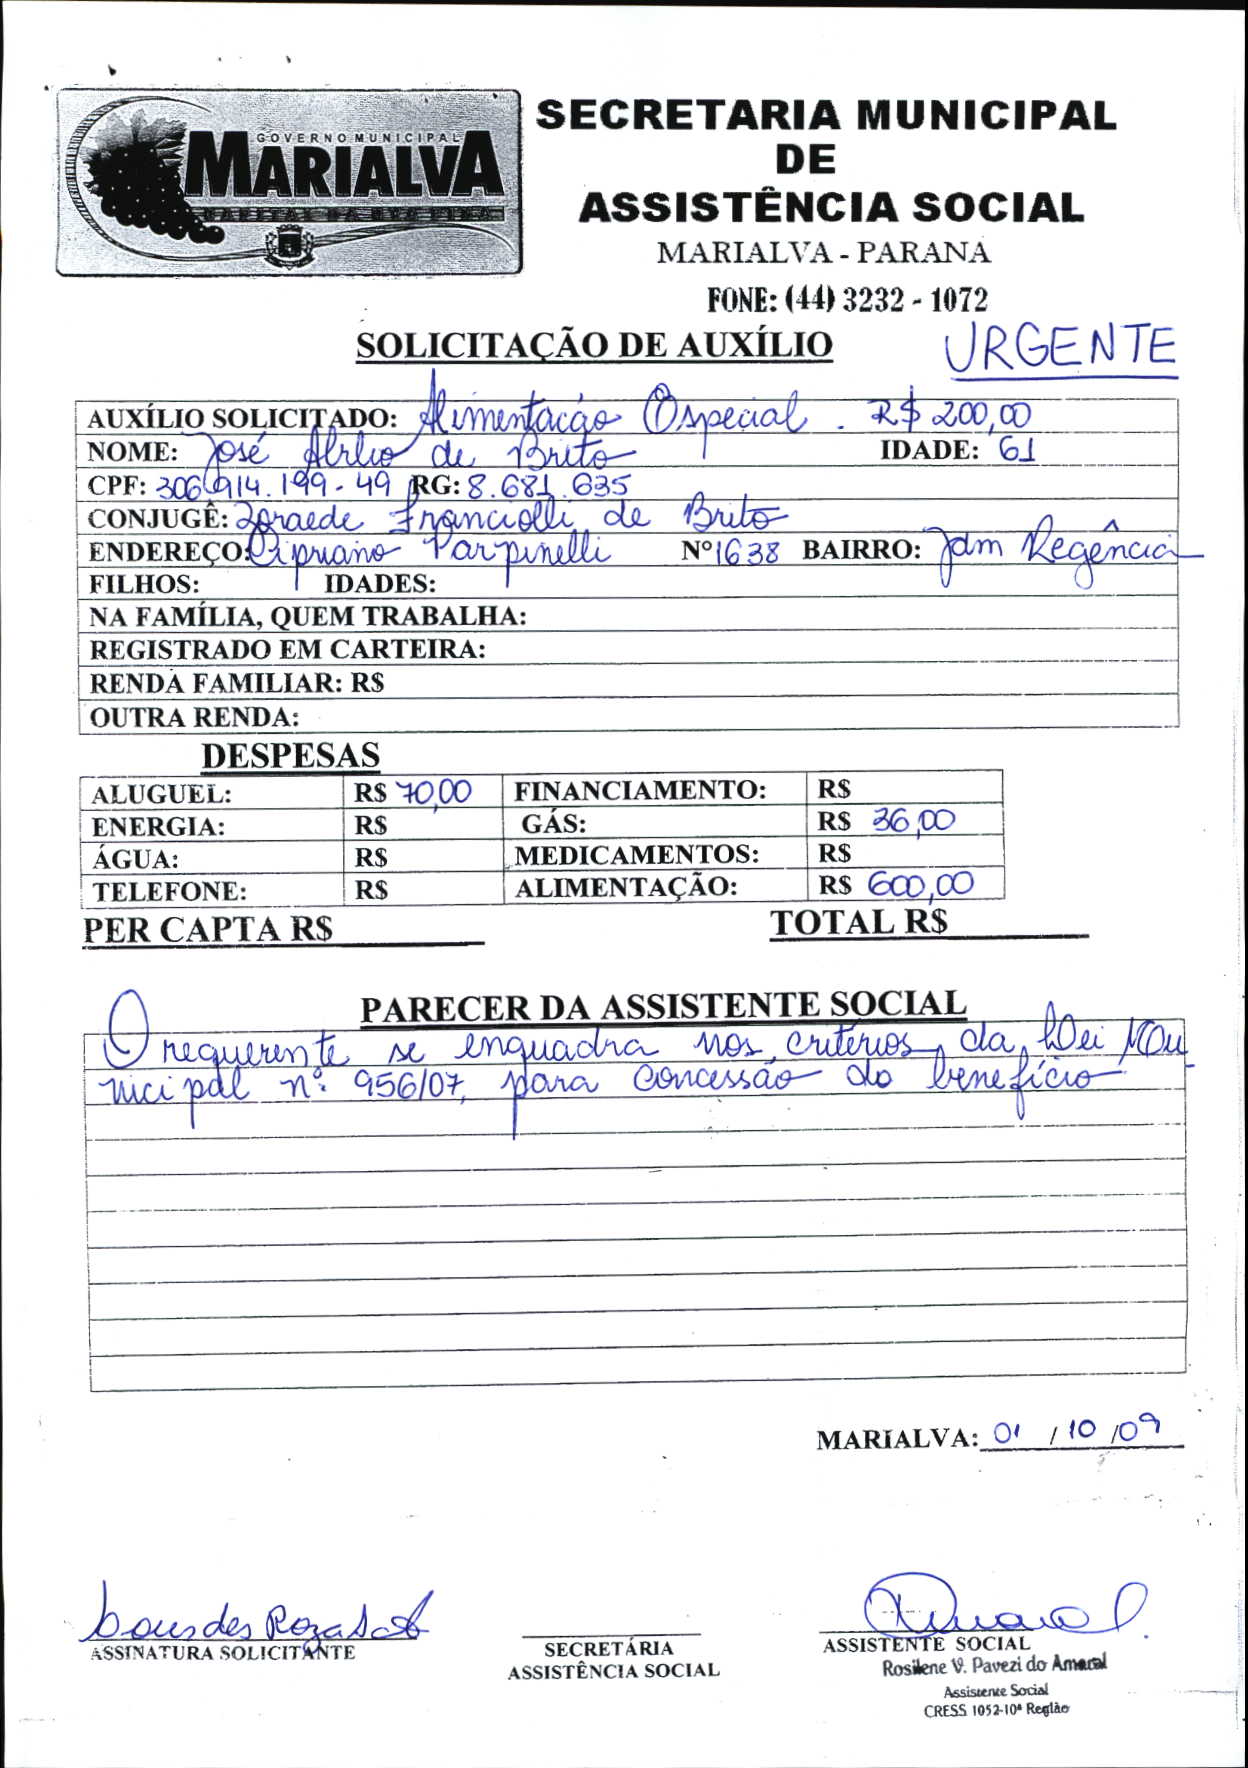 GOVERNO MUNICIPAL
MARIALVA
CAPITAL DA UVA FINA
SECRETARIA MUNICIPAL
DE
ASSISTÊNCIA SOCIAL
MARIALVA - PARANA
FONE: (44) 3232 - 1072
SOLICITAÇÃO DE AUXÍLIO URGENTE
AUXÍLIO SOLICITADO: Alimentação Especial. R$ 200,00
NOME: José de Brito IDADE: 61
CPF: 306.914.199-49 RG: 8.681.635
CONJUGÊ: de Brito
ENDEREÇO: Cipriano Parpinelli Nº 1638 BAIRRO: Jdm Regência
FILHOS: IDADES:
NA FAMÍLIA, QUEM TRABALHA:
REGISTRADO EM CARTEIRA:
RENDA FAMILIAR: R$
OUTRA RENDA:
DESPESAS
ALUGUEL: R$ 70,00 FINANCIAMENTO: R$
ENERGIA: R$ GÁS: R$ 36,00
ÁGUA: R$ MEDICAMENTOS: R$
TELEFONE: R$ ALIMENTAÇÃO: R$ 600,00
PER CAPTA R$ TOTAL R$
PARECER DA ASSISTENTE SOCIAL
O requerente se enquadra nos critérios da Lei Mu
nicipal nº 956/07, para concessão do benefício
MARIALVA: 01 / 10 /09
Lourdes Roza
ASSINATURA SOLICITANTE
SECRETÁRIA
ASSISTÊNCIA SOCIAL
ASSISTENTE SOCIAL
Rosilene V. Pavezi do Amaral
Assistente Social
CRESS 1052-10ª Região